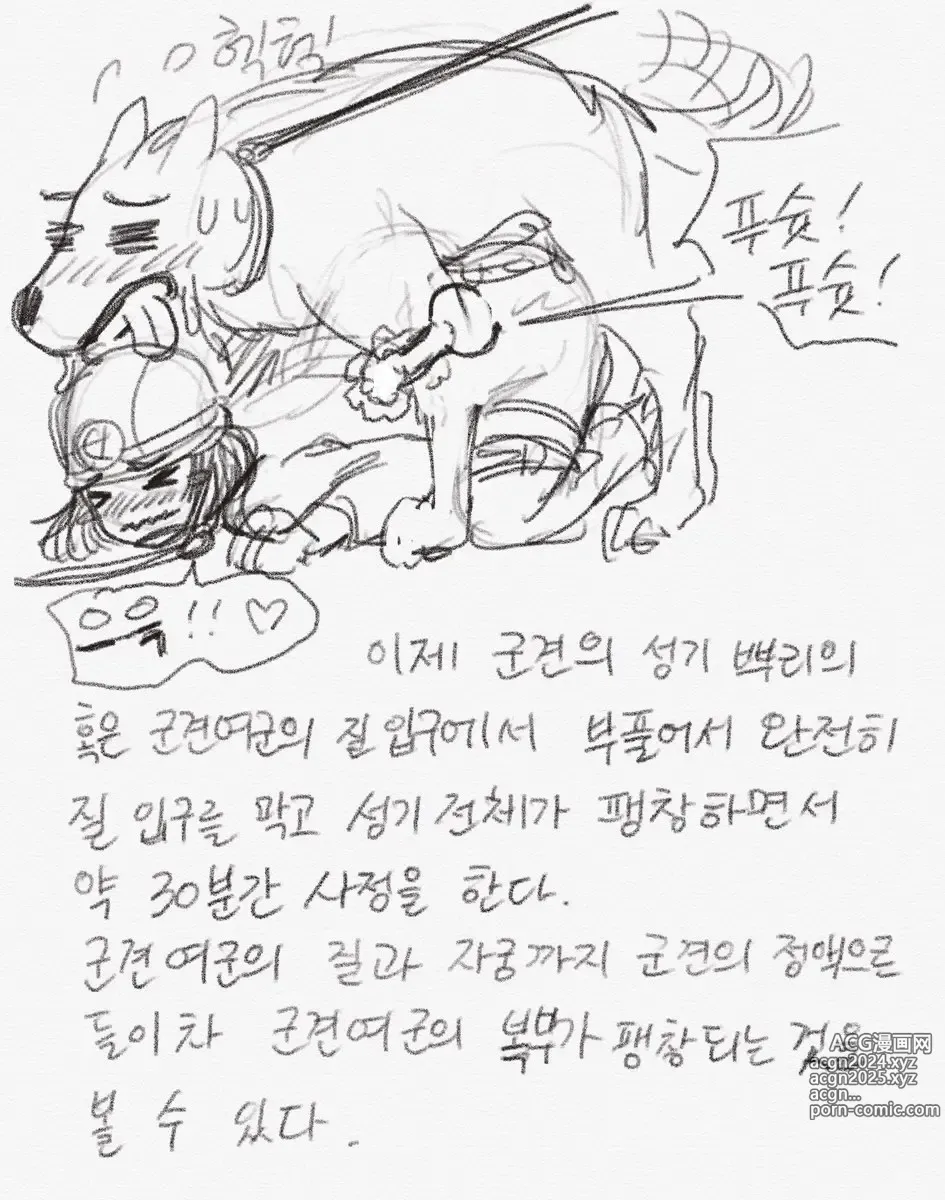 헥헥!
푸슛!
푸슛!
으윽!! ♡
이제 군견의 성기 뿌리의
혹은 군견여군의 질 입구에서 부풀어서 완전히
질 입구를 막고 성기 전체가 팽창하면서
약 30분간 사정을 한다.
군견여군의 질과 자궁까지 군견의 정액으로
들이차 군견여군의 복부가 팽창되는 것을
볼 수 있다.
ACG漫画网
acgn2024.xyz
acgn2025.xyz
acgn...
porn-comic.com